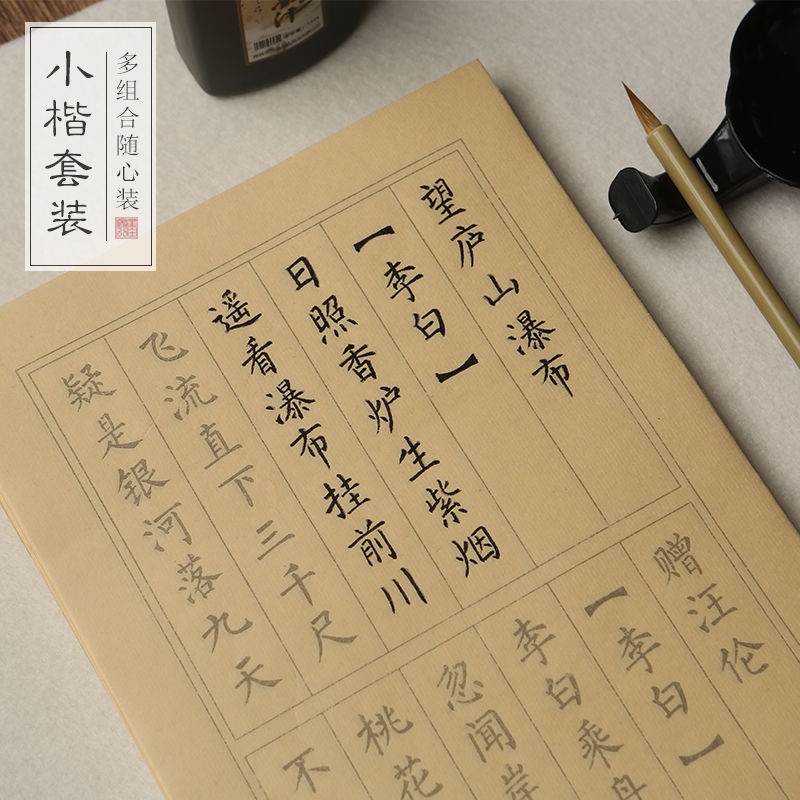 小楷套装
多组合随心装
望庐山瀑布
【李白】
日照香炉生紫烟
遥看瀑布挂前川
飞流直下三千尺
疑是银河落九天
赠汪伦
【李白】
李白乘舟
忽闻岸
桃花
不